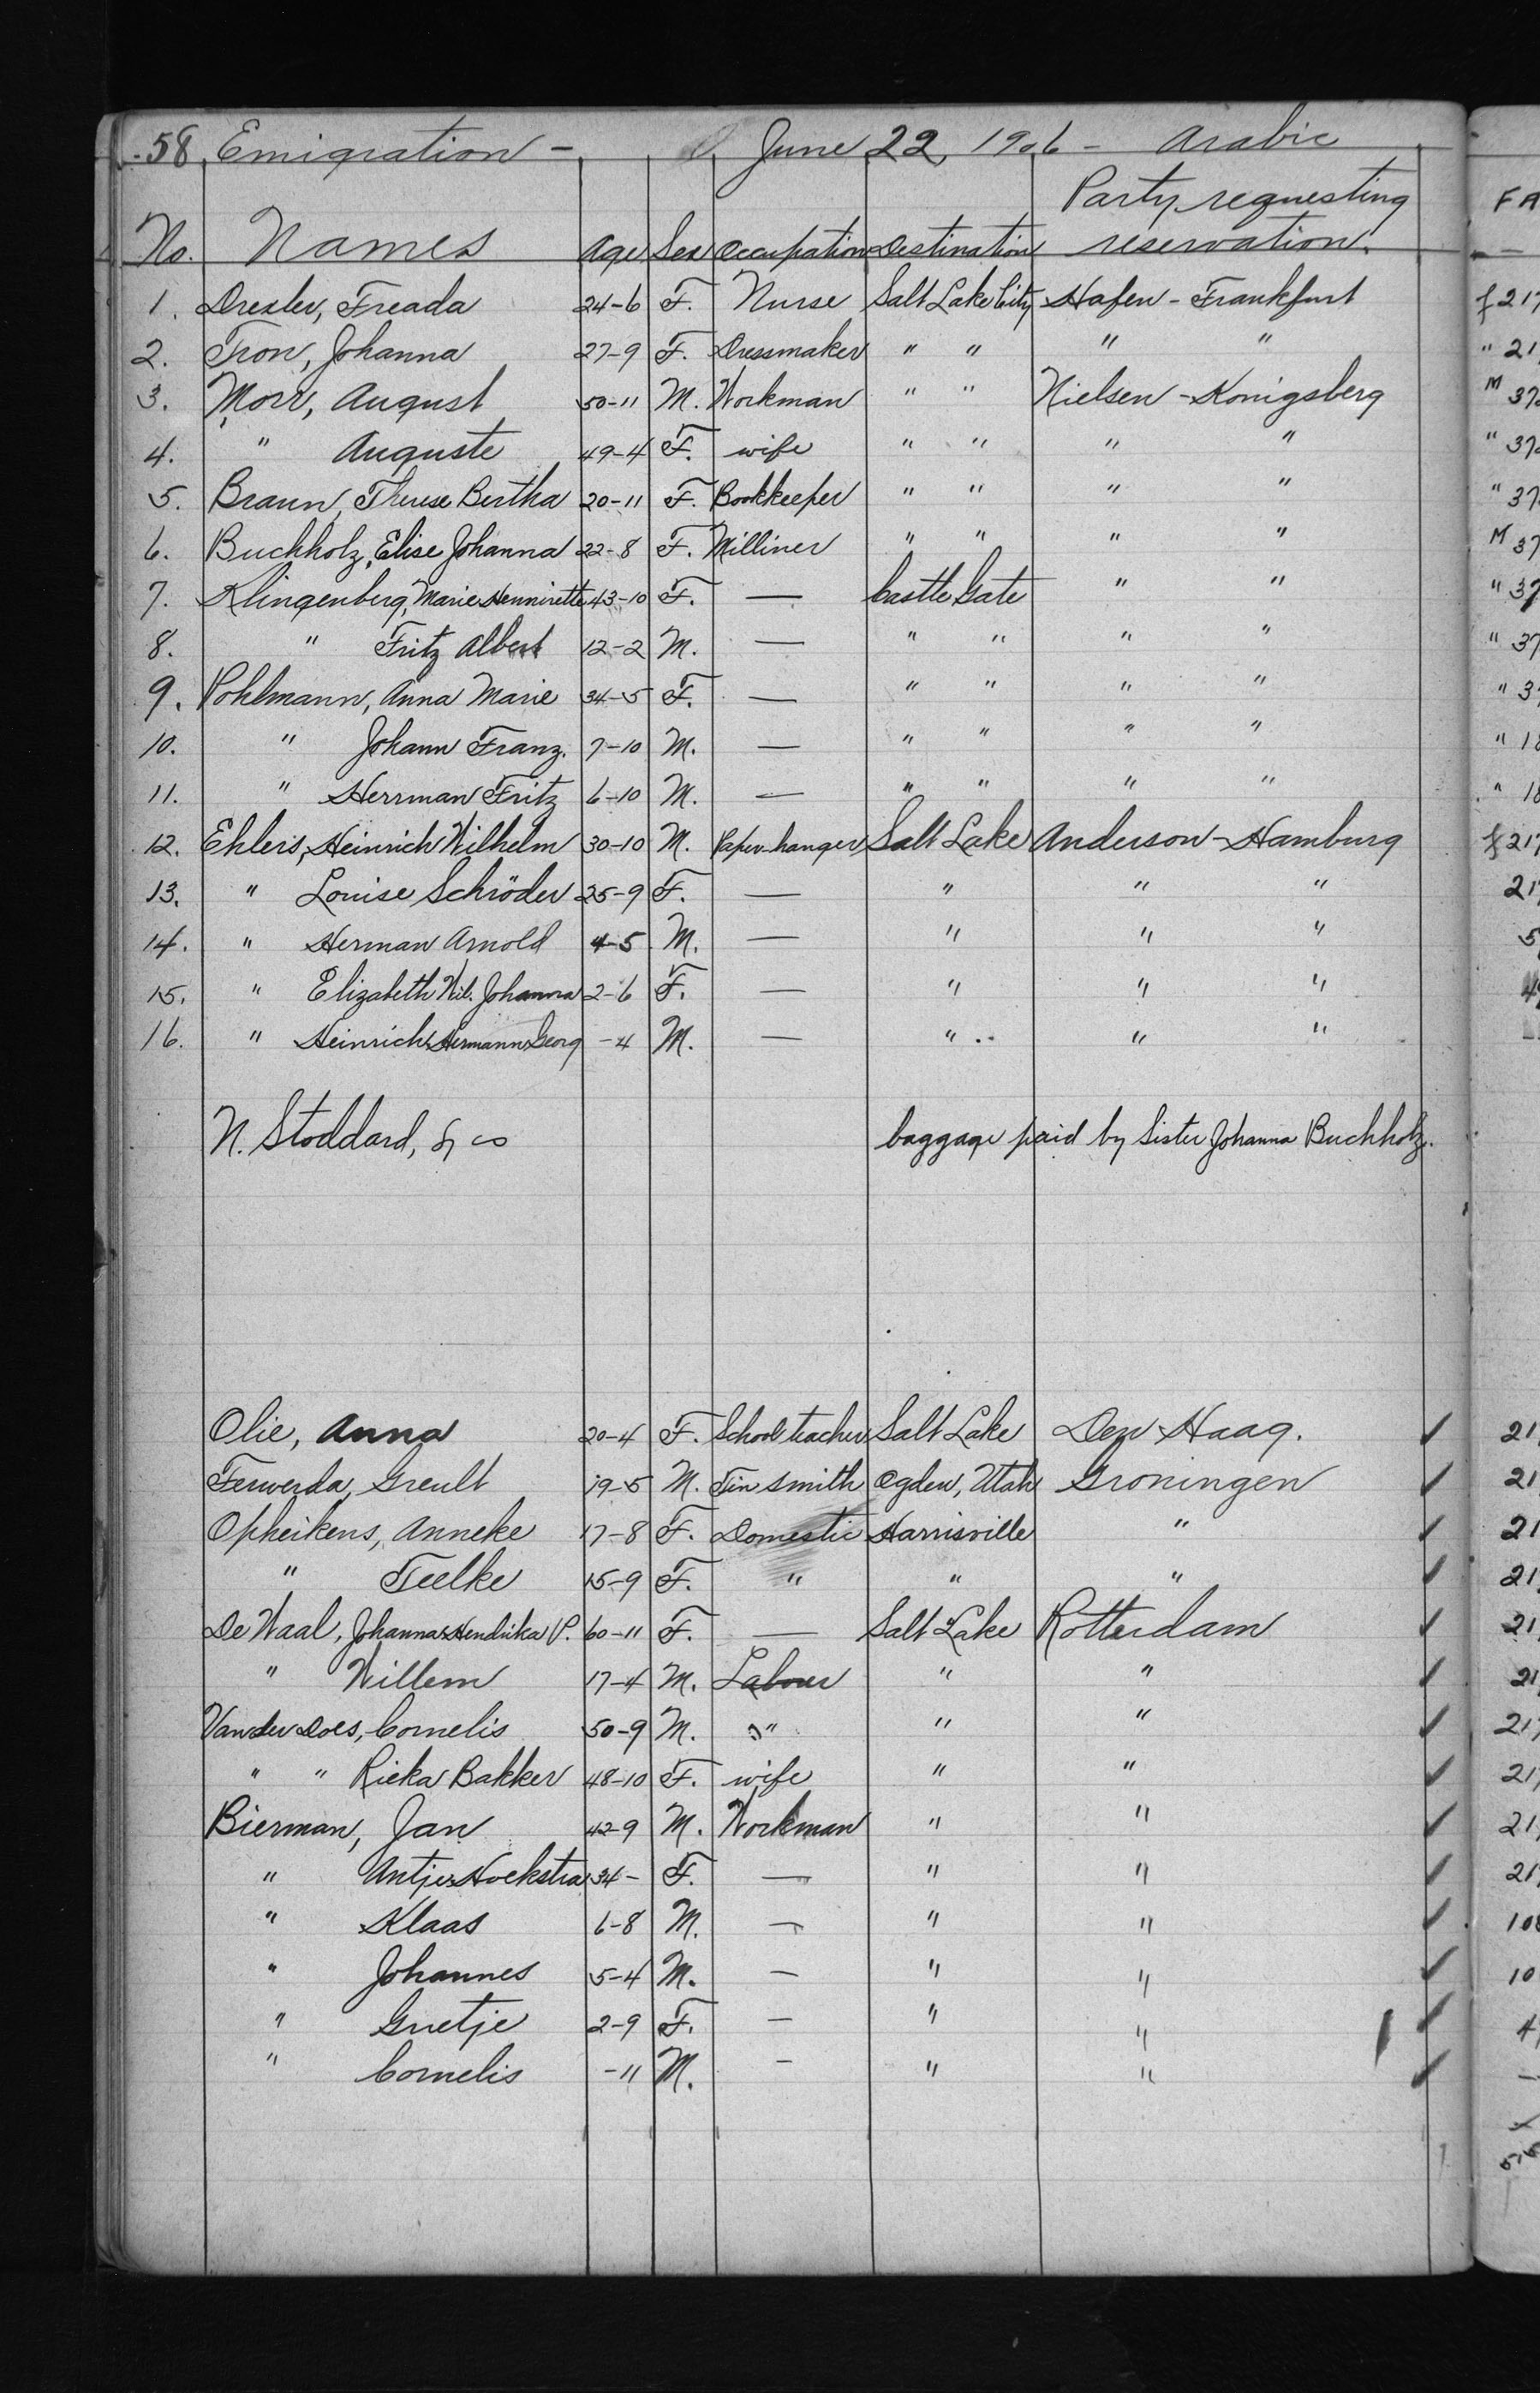 58 Emigration - June 22, 1906 - Arabic
Party requesting
No. Names Age Sex Occupation Destination reservation.
1. Drexler, Freada 24-6 F. Nurse Salt Lake City Hafen - Frankfurt
2. Tron, Johanna 27-9 F. Dressmaker " " " "
3. Morr, August 50-11 M. Workman " " Nielsen - Konigsberg
4. " Auguste 49-4 F. wife " " " "
5. Braun, Therese Bertha 20-11 F. Bookkeeper " " " "
6. Buchholz, Elise Johanna 22-8 F. Milliner " " " "
7. Klingenberg, Marie Hennirette 43-10 F. — Castle Gate " "
8. " Fritz Albert 12-2 M. — " " " "
9. Pohlmann, Anna Marie 34-5 F. — " " " "
10. " Johann Franz. 7-10 M. — " " " "
11. " Herrman Fritz 6-10 M. — " " " "
12. Ehlers, Heinrich Wilhelm 30-10 M. Paper-hanger Salt Lake Anderson - Hamburg
13. " Louise Schröder 25-9 F. — " " "
14. " Herman Arnold 4-5 M. — " " "
15. " Elizabeth Wil. Johanna 2-6 F. — " " "
16. " Heinrich Hermann Georg -4 M. — " " "
N. Stoddard, & co baggage paid by Sister Johanna Buchholz.
Olie, Anna 20-4 F. School teacher Salt Lake Den Haag. ✓
Ferwerda, Greult 19-5 M. Tin smith Ogden, Utah Groningen ✓
Opheikens, Anneke 17-8 F. Domestic Harrisville " ✓
" Teelke 15-9 F. " " " ✓
De Waal, Johanna Hendrika P. 60-11 F. — Salt Lake Rotterdam ✓
" Willem 17-4 M. Laborer " " ✓
Van der Does, Cornelis 50-9 M. " " " ✓
" " Rieka Bakker 48-10 F. wife " " ✓
Bierman, Jan 42-9 M. Workman " " ✓
" Antje Hoekstra 34- F. — " " ✓
" Klaas 6-8 M. — " " ✓
" Johannes 5-4 M. — " " ✓
" Grietje 2-9 F. — " " ✓
" Cornelis -11 M. — " " ✓